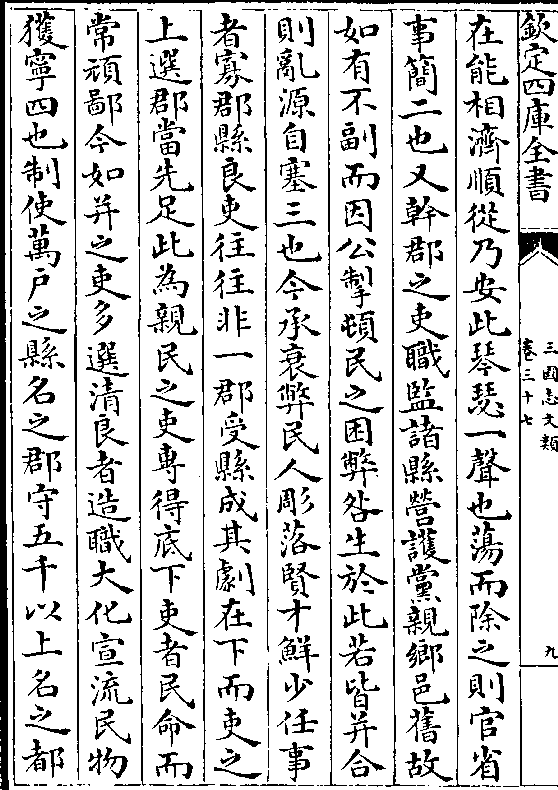 欽定四庫全書
三國志文類
卷三十七
九
在能相濟順從乃安此琴瑟一聲也蕩而除之則官省
事簡二也又幹郡之吏職監諸縣營護黨親鄉邑舊故
如有不副而因公掣頓民之困弊咎生於此若皆并合
則亂源自塞三也今承衰弊民人彫落賢才鮮少任事
者寡郡縣良吏往往非一郡受縣成其劇在下而吏之
上選郡當先足此為親民之吏專得底下吏者民命而
常頑鄙今如并之吏多選清良者造職大化宣流民物
獲寧四也制使萬戶之縣名之郡守五千以上名之都